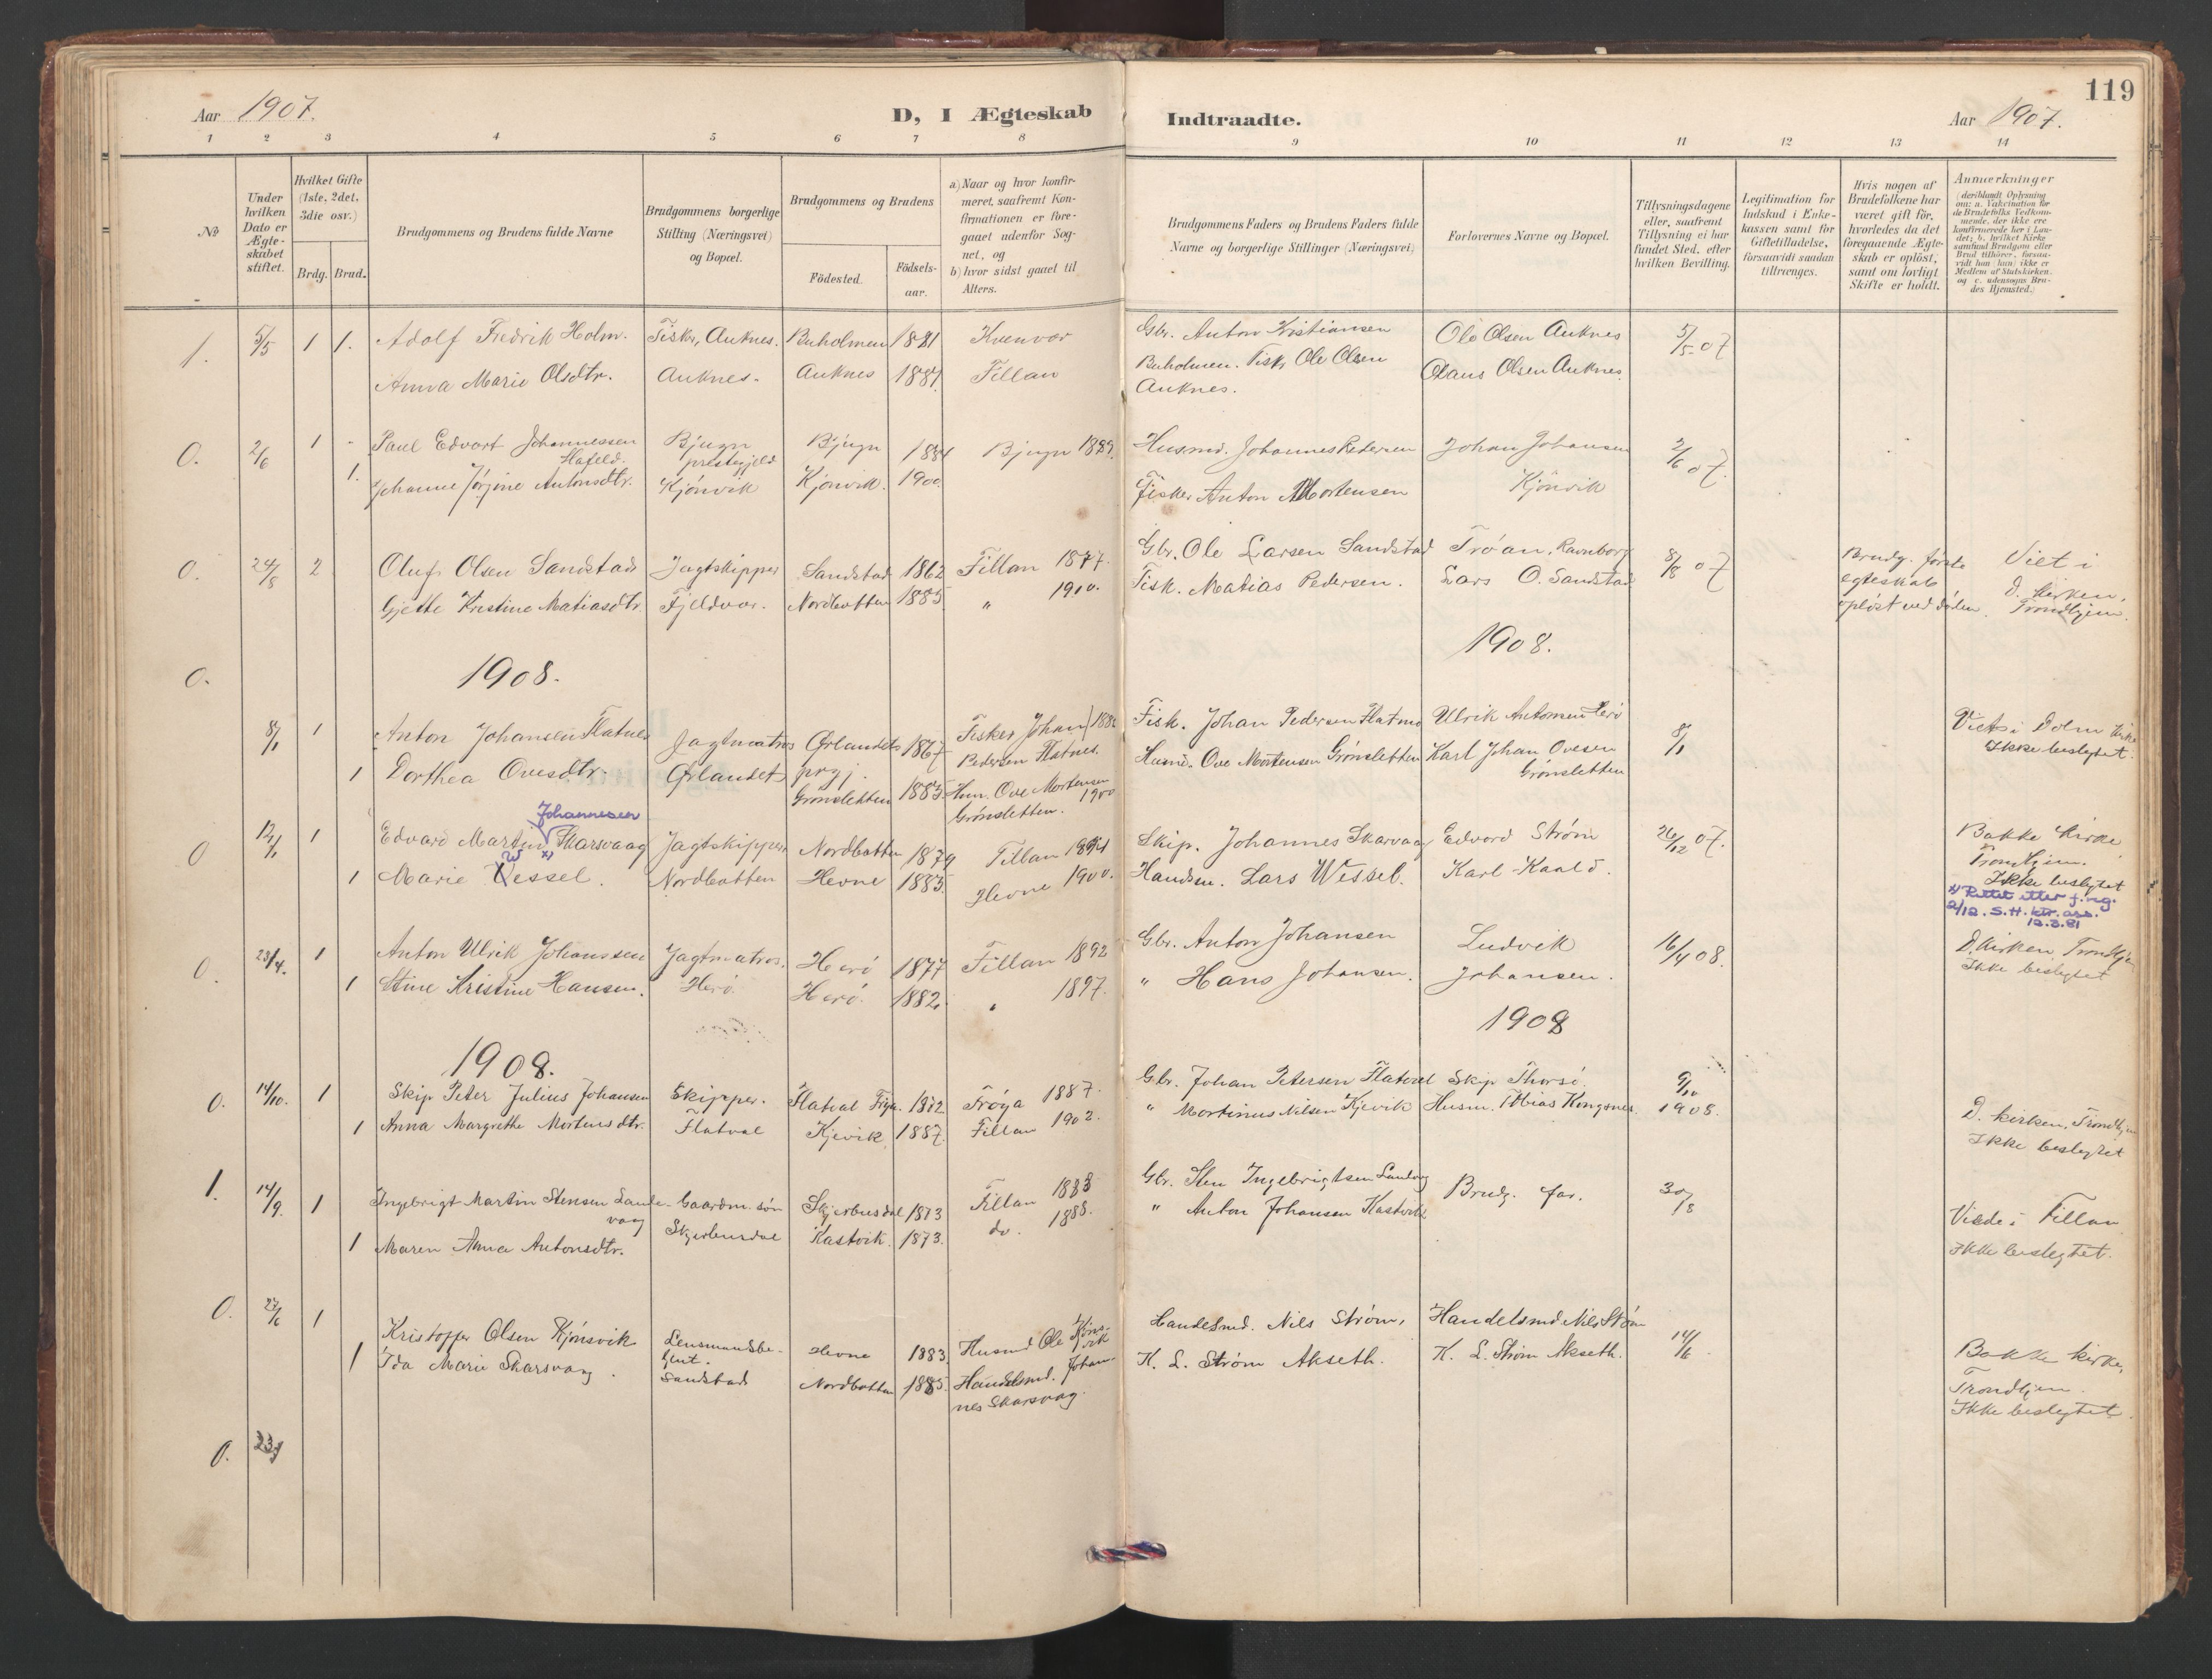 119
Aar 1907.
D, I Ægteskab Indtraadte.
Aar 1907.
1 2 3 4 5 6 7 8 9 10 11 12 13 14
№
Under hvilken Dato er Ægteskabet stiftet.
Hvilket Gifte (1ste, 2det, 3die osv.)
Brdg. Brud.
Brudgommens og Brudens fulde Navne
Brudgommens borgerlige Stilling (Næringsvei) og Bopæl.
Brudgommens og Brudens
Födested.
Födselsaar.
a) Naar og hvor konfirmeret, saafremt Konfirmationen er foregaaet udenfor Sognet, og
b) hvor sidst gaaet til Alters.
Brudgommens Faders og Brudens Faders fulde Navne og borgerlige Stillinger (Næringsvei)
Forlovernes Navne og Bopæl.
Tillysningsdagene eller, saafremt Tillysning ei har fundet Sted, efter hvilken Bevilling.
Legitimation for Indskud i Enkekassen samt for Giftetilladelse, forsaavidt saadan tiltrænges.
Hvis nogen af Brudefolkene har været gift för, hvorledes da det foregaaende Ægteskab er oplöst, samt om lovligt Skifte er holdt.
Anmærkninger
(deriblandt Oplysning om: a. Vakcination for de Brudefolks Vedkommende, der ikke ere konfirmerede her i Landet; b. hvilket Kirkesamfund Brudgom eller Brud tilhörer, forsaavidt han (hun) ikke er Medlem af Statskirken, og c. udensogns Brudes Hjemsted.)
1. 5/5 1 1. Adolf Fredrik Holm. Fisker, Auknes. Buholmen 1881 Kvenvær Gbr. Anton Kristiansen Ole Olsen Auknes 5/5 07
Anna Marie Olsdtr. Auknes. Auknes 1887 Fillan Buholmen. Fisk. Ole Olsen Olaus Olsen Auknes.
Auknes.
0. 2/6 1 - Paul Edvart Johannessen Bjugn Bjugn 1884 Bjugn Husmd. Johannes Pedersen Johan Johansen 2/6 07
Hafeld. prestegjeld
1. Johanne Jørgine Antonsdtr. Kjönvik Kjönvik. 1900 Fisker Anton Mortensen Kjönvik
0. 24/8 2 Oluf Olsen Sandstad Jagtskipper Sandstad 1862 Fillan 1877. Gbr. Ole Larsen Sandstad Tröan, Ravnborg 8/8 07 Brudg. første Viet i
Gjette Kristine Matiasdtr. Fjeldvær. Nordbotten 1885 " 1900. Fisk. Matias Pedersen. Lars O. Sandstad egteskab D. kirken,
opløst ved döden. Trondhjem.
0. 1908. 1908.
8/1 1 Anton Johansen Flatnes Jagtmatros Ørlandets 1867 Fisker Johan Fisk. Johan Pedersen Flatnes Ulrik Antonsen Herö 8/1 Viet i Dolm kirke
Pedersen Flatnes. Ikke beslegtet.
1 Dorthea Ovesdtr. Ørlandet prgj. Husmd. Ove Mortensen Grönsletten Karl Johan Ovesen
Grönsletten 1883. Hun. Ove Mortensen 1900 Grönsletten
Grönsletten.
Johannesen
0 12/1 1 Edvard Martin x) Skarsvaag Jagtskipper Nordbotten 1879 Fillan 1894 Skip. Johannes Skarvaag Edvard Strøm 26/12 07. Bakke kirke
Trondhjem.
1 Marie Wessel. Nordbotten Hevne 1885 Hevne 1900. Handsm. Lars Wessel. Karl Kaald. Ikke beslegtet
x) Rettet etter f.reg.
2/12. S.H. ktr. ass.
12.3.81
0. 23/4. 1 Anton Ulrik Johanssen Jagtmatros. Herö 1877 Fillan 1892 Gbr. Anton Johansen Ludvik 16/4 08. D. kirken, Trondhjem
1 Stine Kristine Hansen. Herö Herö. 1882. " 1897. " Hans Johansen. Johansen. Ikke beslegtet
1908. 1908
0. 14/10. 1 Skip Peter Julius Johansen Skipper. Flatval Fröya. 1872 Fröya 1887. Gbr. Johan Petersen Flatval Skip Thorsö. 9/10 1908.
1 Anna Margrethe Mortensdtr. Flatval Kjevik 1887. Fillan 1902. " Mortinus Nilsen Kjevik Husm. Tobias Kongsnes. D. kirken, Trondhjem
Ikke beslegtet
1. 14/9. 1 Ingebrigt Martin Stensen Sande- Gaardm. søn Skjerbusdal 1873 Fillan 1888 Gbr. Sten Ingebrigtsen Brudg. far. 30/8
vaag Skjerbusdal
1 Maren Anna Antonsdtr. Kastvik. 1873. do. 1888. " Anton Johansen Kastvik Viede i Fillan
Ikke beslegtet.
0. 27/6 1 Kristoffer Olsen Kjönsvik Lensmandsbe- Hevne 1883. Husmd Ole Kjönsvik Handelsmd. Nils Strøm, Handelsmd Nils Strøm 14/6.
tjent.
1 Ida Marie Skarsvaag. Sandstad Nordbotten 1885. Handelsmd. Johan- K. L. Strøm Akseth. K. L. Strøm Akseth. Bakke kirke,
nes Skarsvaag. Trondhjem.
Ikke beslegtet.
0.